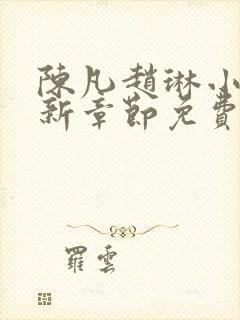 陳凡趙琳小
新章節免費
羅雲